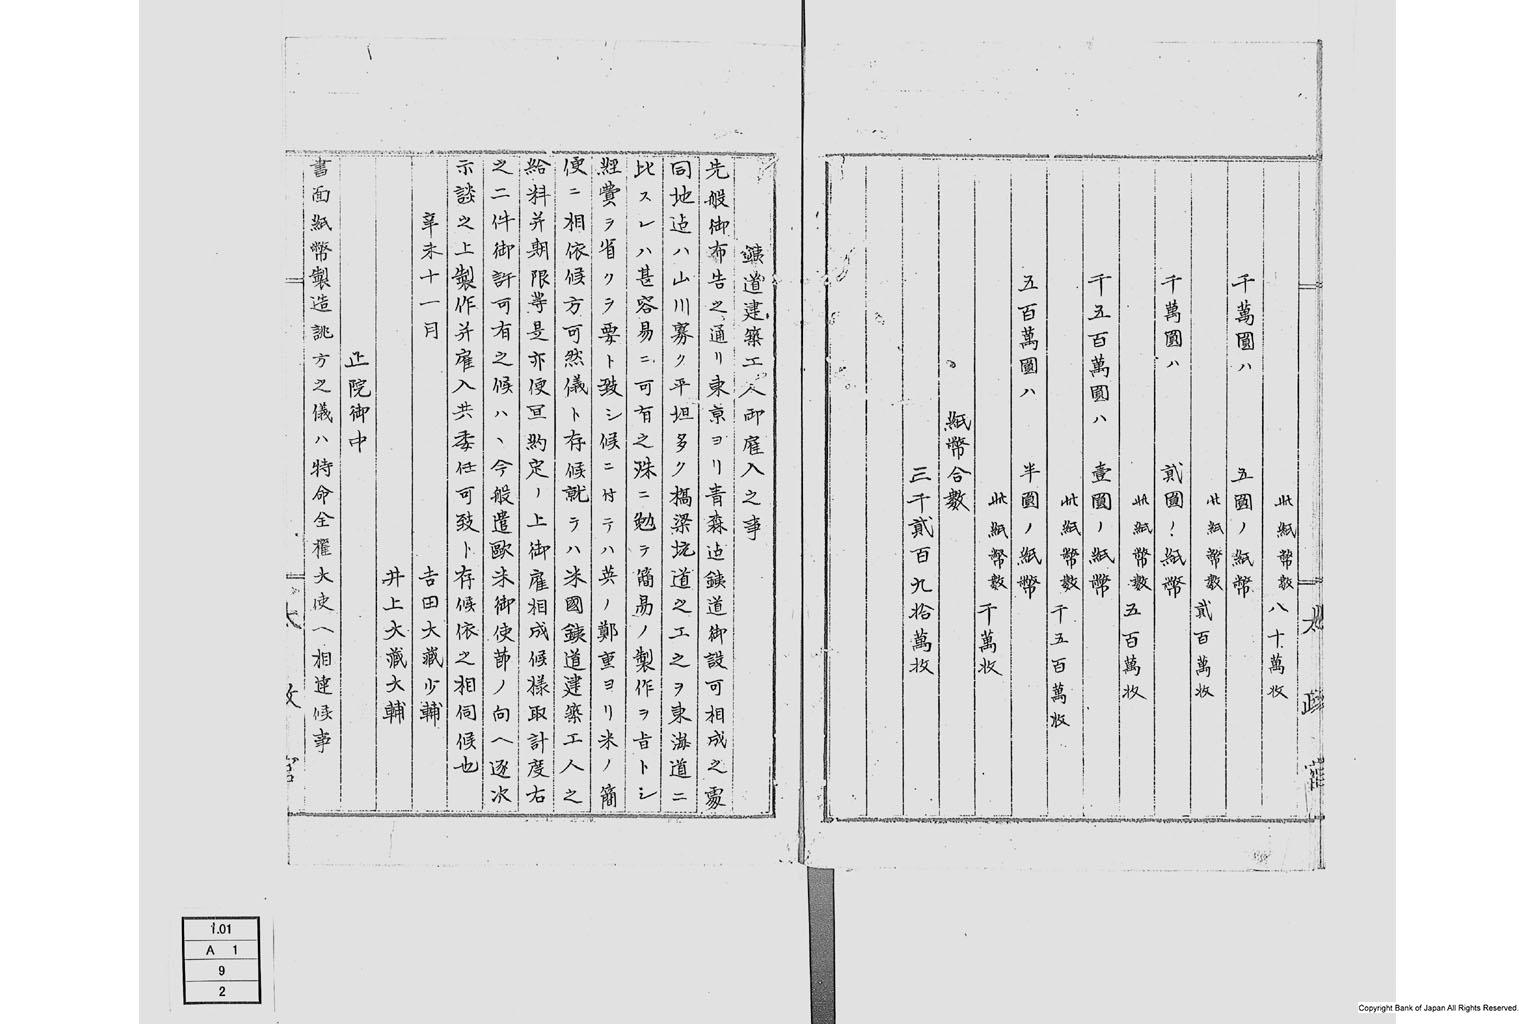 此紙幣数 八十萬枚
千萬圓ハ 五圓ノ紙幣
此紙幣数 貳百萬枚
千萬圓ハ 貳圓ノ紙幣
此紙幣数 五百萬枚
千五百萬圓ハ 壹圓ノ紙幣
此紙幣数 千五百萬枚
五百萬圓ハ 半圓ノ紙幣
此紙幣数 千萬枚
紙幣合数
三千貳百九拾萬枚
太政官
鐵道建築工人御雇入之事
先般御布告之通リ東京ヨリ青森迠鐵道御設可相成之處
同地迠ハ山川寡ク平坦多ク橋梁坑道之工之ヲ東海道ニ
比スレハ甚容易ニ可有之殊ニ勉ヲ簡昜ノ製作ヲ旨トシ
経費ヲ省クヲ要ト致シ候ニ付テハ英ノ鄭重ヨリ米ノ簡
便ニ相依候方可然儀ト存候就ラハ米國鐵道建築工人之
給料并期限等是亦便冝約定ノ上御雇相成候様取計度右
之二件御許可有之候ハヽ今般遣歐米御使節ノ向ヘ逐次
示談之上製作并雇入共委任可致ト存候依之相伺候也
辛未十一月
吉田大藏少輔
井上大藏大輔
正院御中
書面紙幣製造誂方之儀ハ特命全權大使ヘ相達候事
1.01
A 1
9
2
Copyright Bank of Japan All Rights Reserved.